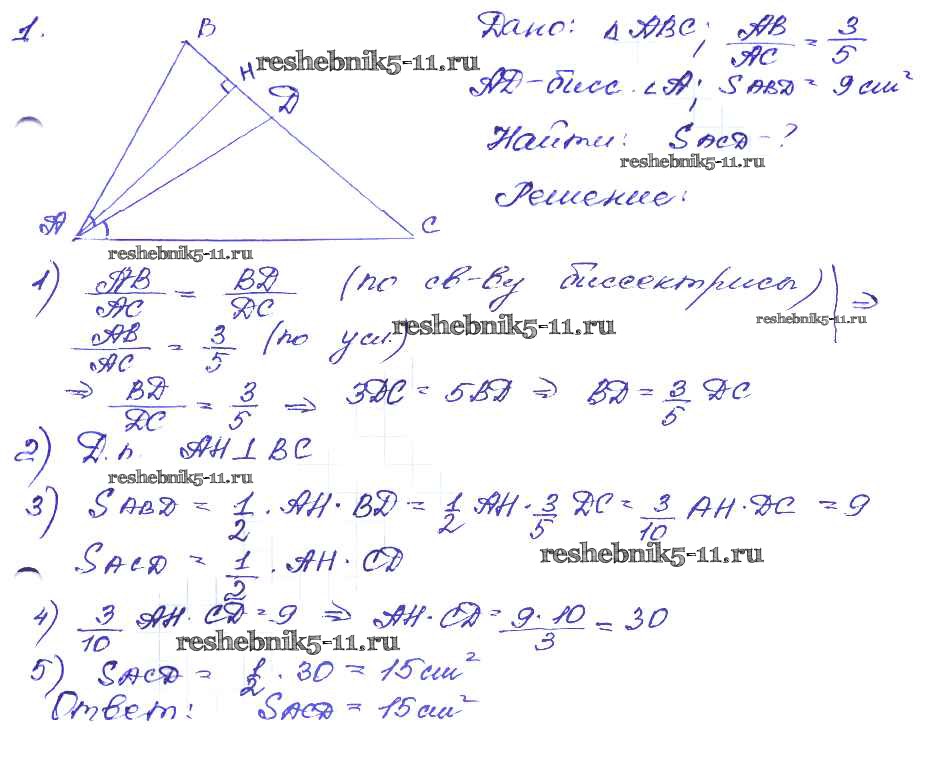 1.
B
H
D
A
C
reshebnik5-11.ru
Дано: △ABC; AB/AC = 3/5
AD-бисс. ∠A; SABD = 9 см²
Найти: SACD - ?
reshebnik5-11.ru
Решение:
reshebnik5-11.ru
1) AB/AC = BD/DC (по св-ву биссектрисы) | ⇒
reshebnik5-11.ru
reshebnik5-11.ru
AB/AC = 3/5 (по усл.)
⇒ BD/DC = 3/5 ⇒ 3DC = 5BD ⇒ BD = 3/5 DC
2) Д.п. AH⊥BC
reshebnik5-11.ru
3) SABD = 1/2 · AH · BD = 1/2 AH · 3/5 DC = 3/10 AH · DC = 9
reshebnik5-11.ru
SACD = 1/2 · AH · CD
4) 3/10 AH · CD = 9 ⇒ AH · CD = 9·10/3 = 30
reshebnik5-11.ru
5) SACD = 1/2 · 30 = 15 см²
Ответ: SACD = 15 см²